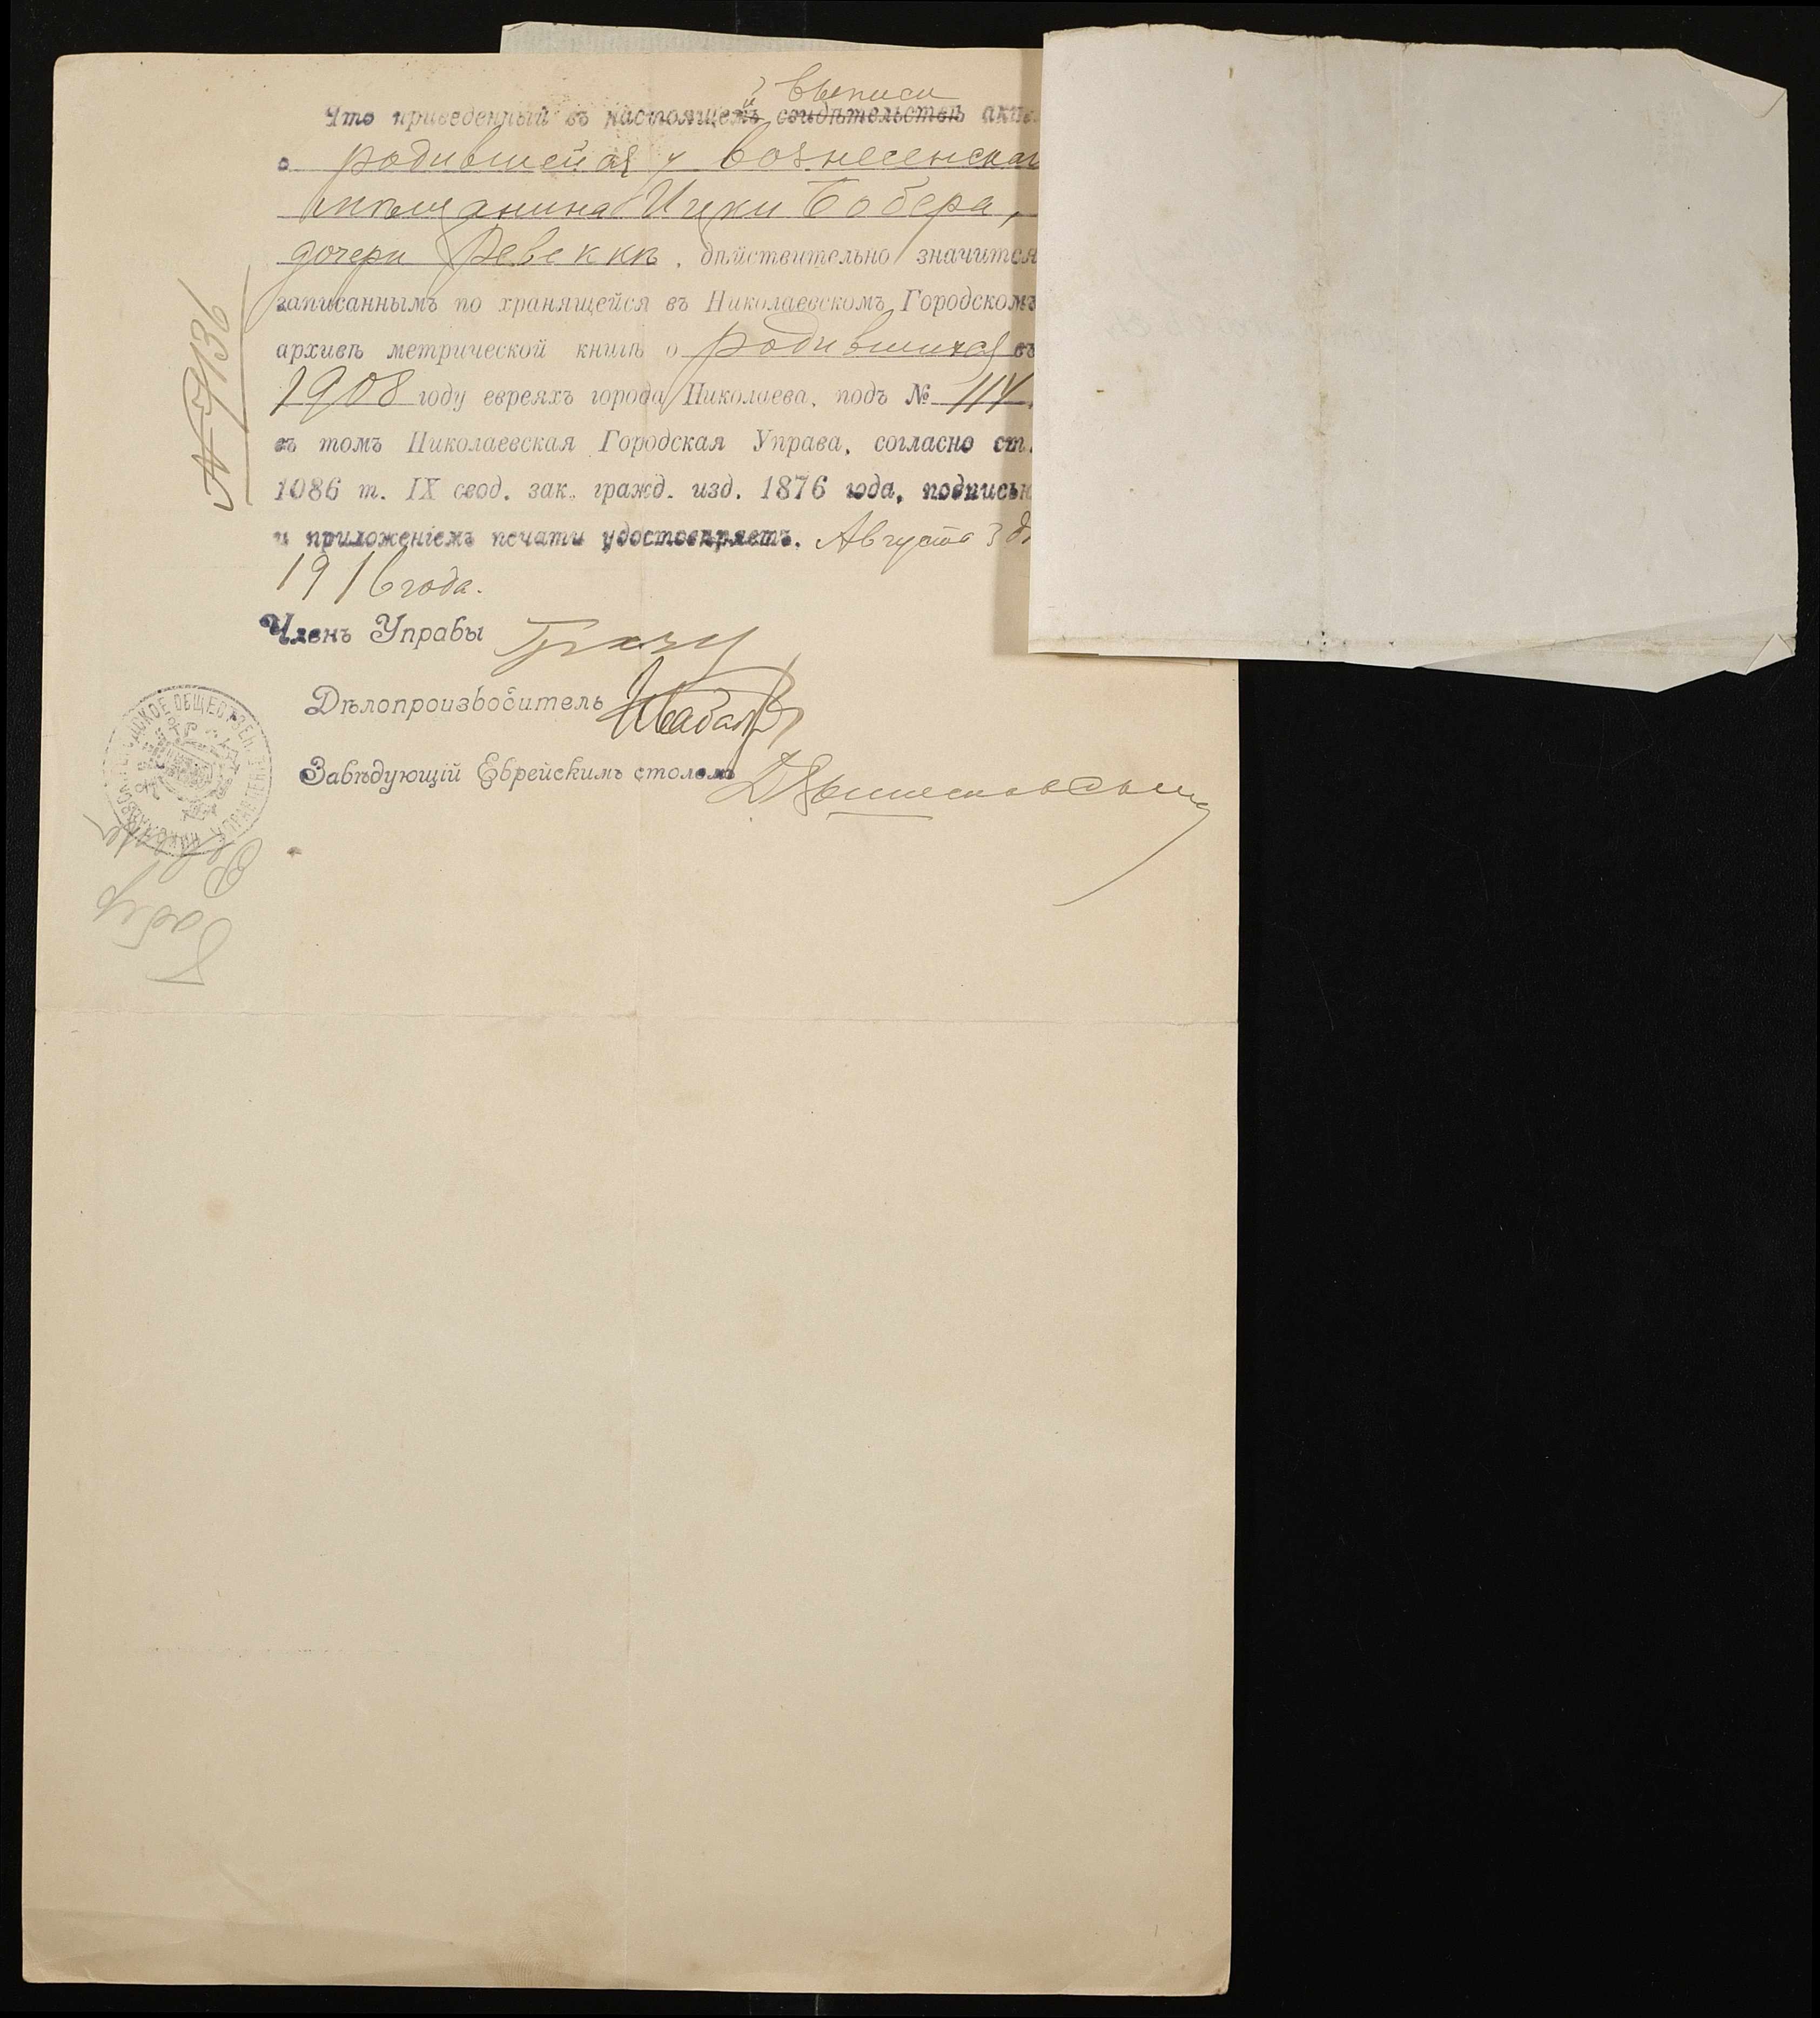 выписи
Что приведенный въ настоящемъ й свидѣтельствѣ акт
о родившейся у вознесенскаг
мѣщанина Ицки Бобера,
дочери Ревеккѣ, дѣйствительно значится
записаннымъ по хранящейся въ Николаевскомъ Городскомъ
архивѣ метрической книгѣ о родившихся въ
1908 году евреяхъ города Николаева, подъ № 114,
въ томъ Николаевская Городская Управа, согласно ст.
1086 т. IX свод. зак. гражд. изд. 1876 года, подписью
и приложеніемъ печати удостовѣряетъ. Августа 3 д
1916 года.
№ 7136
Членъ Управы
Дѣлопроизводитель
Завѣдующій Еврейскимъ столомъ
НИКОЛАЕВСКОЕ ГОРОДСКОЕ ОБЩЕСТВЕН. УПРАВЛЕНІЕ
Бобер